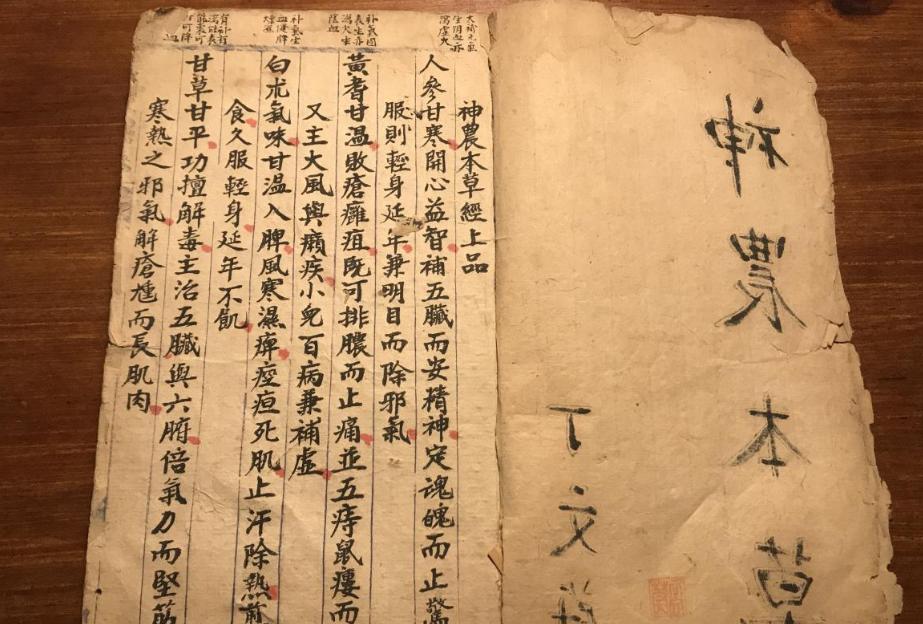 神農本
丁文
大補元氣
生陰血亦
瀉虛火
神農本草經上品
人參甘寒開心益智補五臟而安精神定魂魄而止驚
服則輕身延年兼明目而除邪氣
補氣固
瀉火生
陰血
黃耆甘溫敗瘡癰疽既可排膿而止痛並五痔鼠瘻而
又主大風與癩疾小兒百病兼補虛
補氣生
血健脾
燥濕
白朮氣味甘溫入脾風寒濕痺痙疸死肌止汗除熱煎
食久服輕身延年不飢
甘草甘平功擅解毒主治五臟與六腑倍氣力而堅筋
寒熱之邪氣解瘡尰而長肌肉